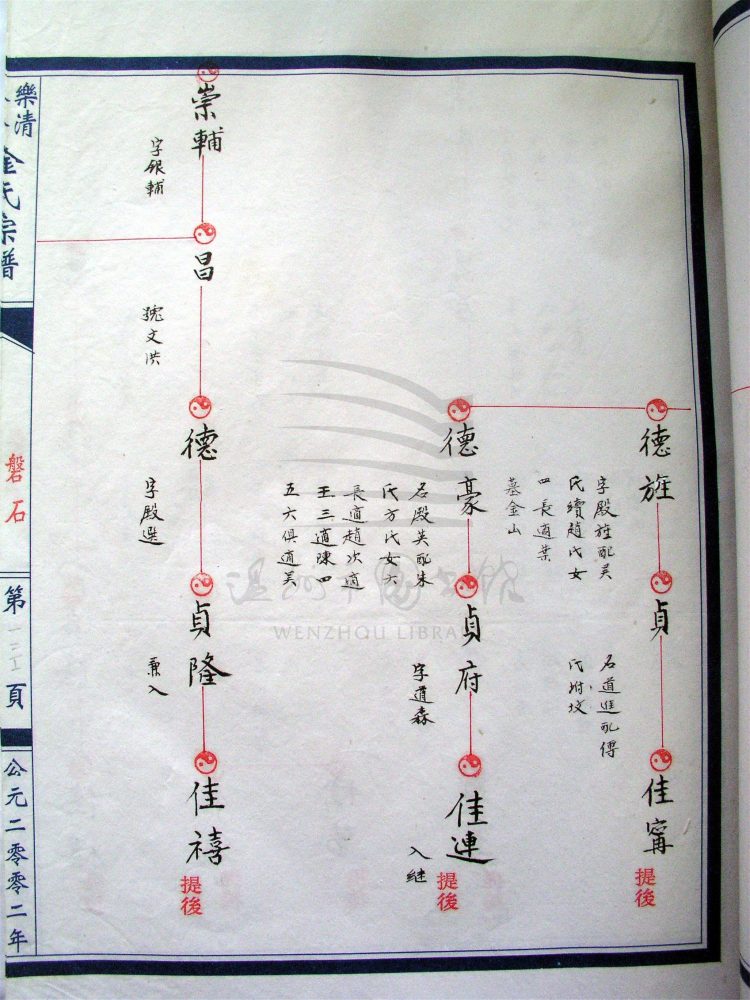 德旌
字殿旌配吴
氏續趙氏女
四長適葉
墓金山
貞
名道進配傅
氏附墳
佳甯
提後
德豪
名殿英配朱
氏方氏女六
長適趙次適
王三適陳四
五六俱適吴
貞府
字道森
佳連
入继
提後
崇輔
字银輔
昌
號文洪
德
字殿選
貞隆
兼入
佳禧
提後
樂清
金氏宗譜
磐石
第
頁
公元二零零二年
温州市图书馆
WENZHOU LIBRA